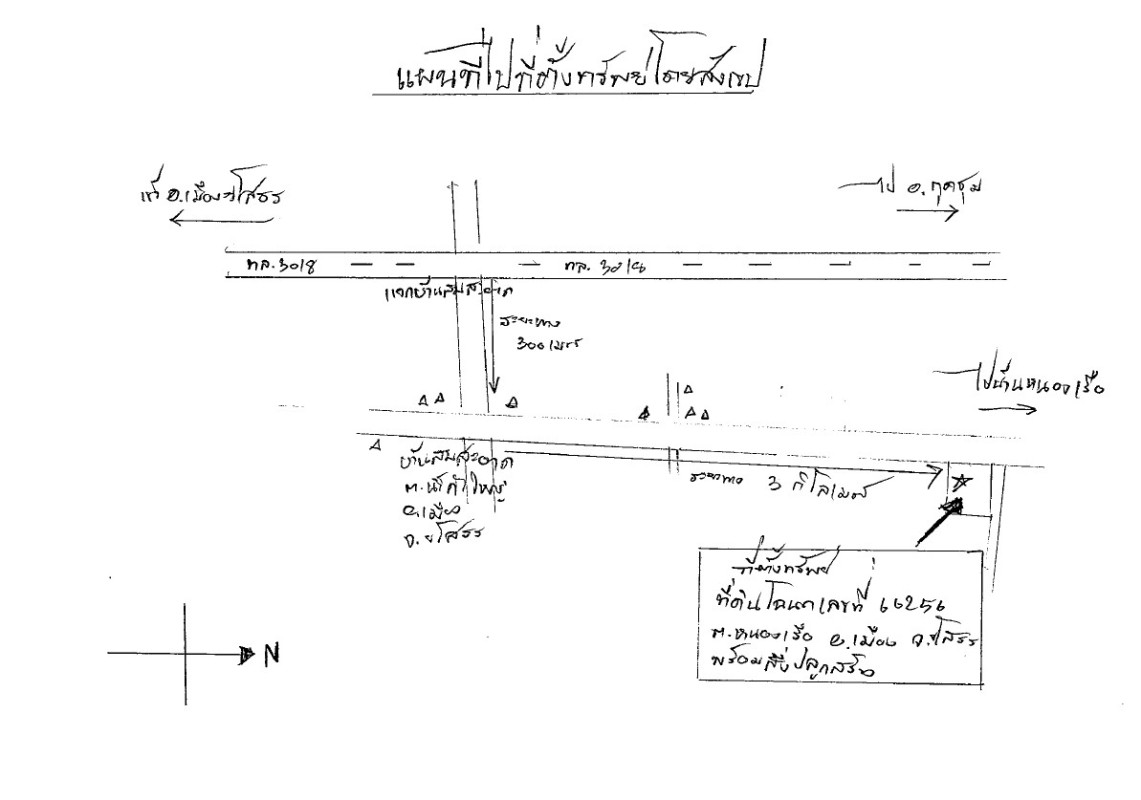 แผนที่ไปที่ตั้งทรัพย์โดยสังเขป
อ.เมืองยโสธร
ไป อ.กุดชุม
ทล.3018
ทล.3018
แยกบ้านสิมสะอาด
ระยะทาง
300 เมตร
ไปบ้านหนองเรือ
บ้านสิมสะอาด
ต.น้ำคำใหญ่
อ.เมือง
จ.ยโสธร
ระยะทาง 3 กิโลเมตร
ที่ตั้งทรัพย์
ที่ดินโฉนดเลขที่
ต.หนองเรือ อ.เมือง จ.ยโสธร
พร้อมสิ่งปลูกสร้าง
N